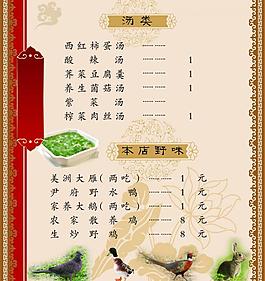 汤类
西红柿蛋汤
酸辣汤 1
荠菜豆腐羹
养生菌菇汤 1
紫菜汤
榨菜肉丝汤 1
本店野味
美洲大雁(两吃) 1元
尹府野水鸭 1元
家养大鹅(两吃) 1元
农家散养鸡 8元
生炒野鸡 8元